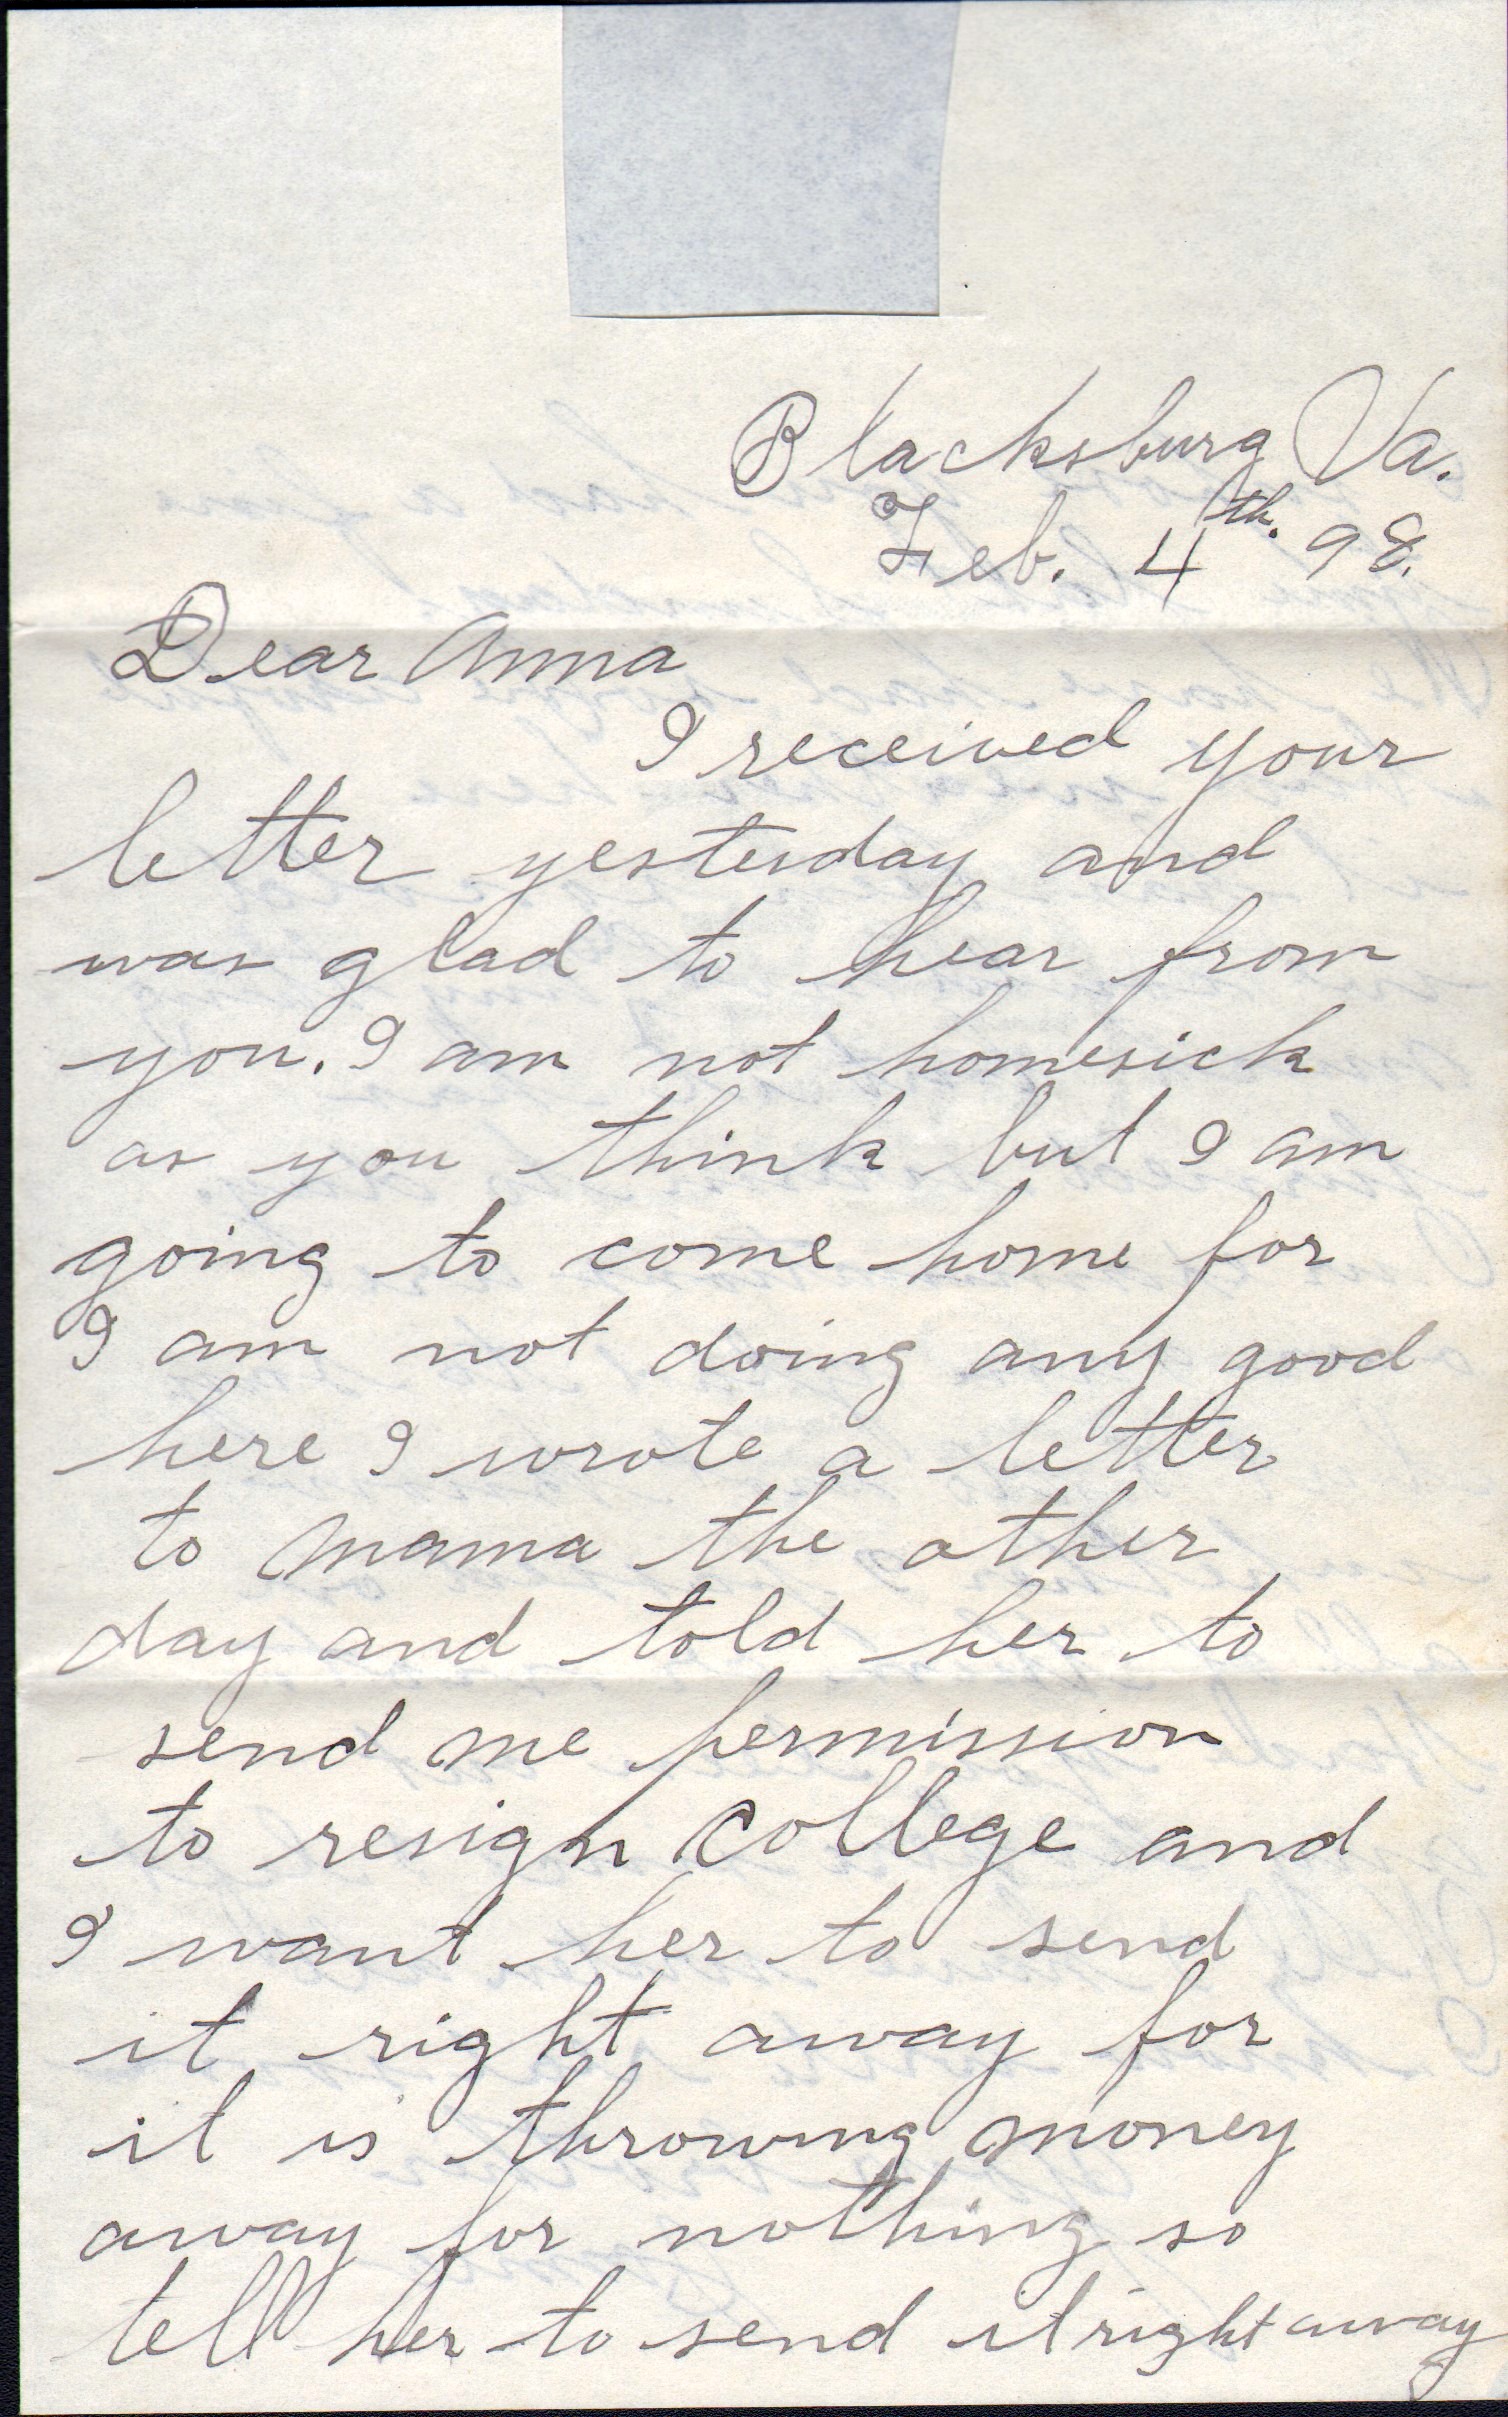 Blacksburg Va.
Feb. 4th. 98.
Dear Anna
I received your
letter yesterday and
was glad to hear from
you. I am not homesick
as you think but I am
going to come home for
I am not doing any good
here I wrote a letter
to mama the other
day and told her to
send me permission
to resign College and
I want her to send
it right away for
it is throwing money
away for nothing so
tell her to send it right away